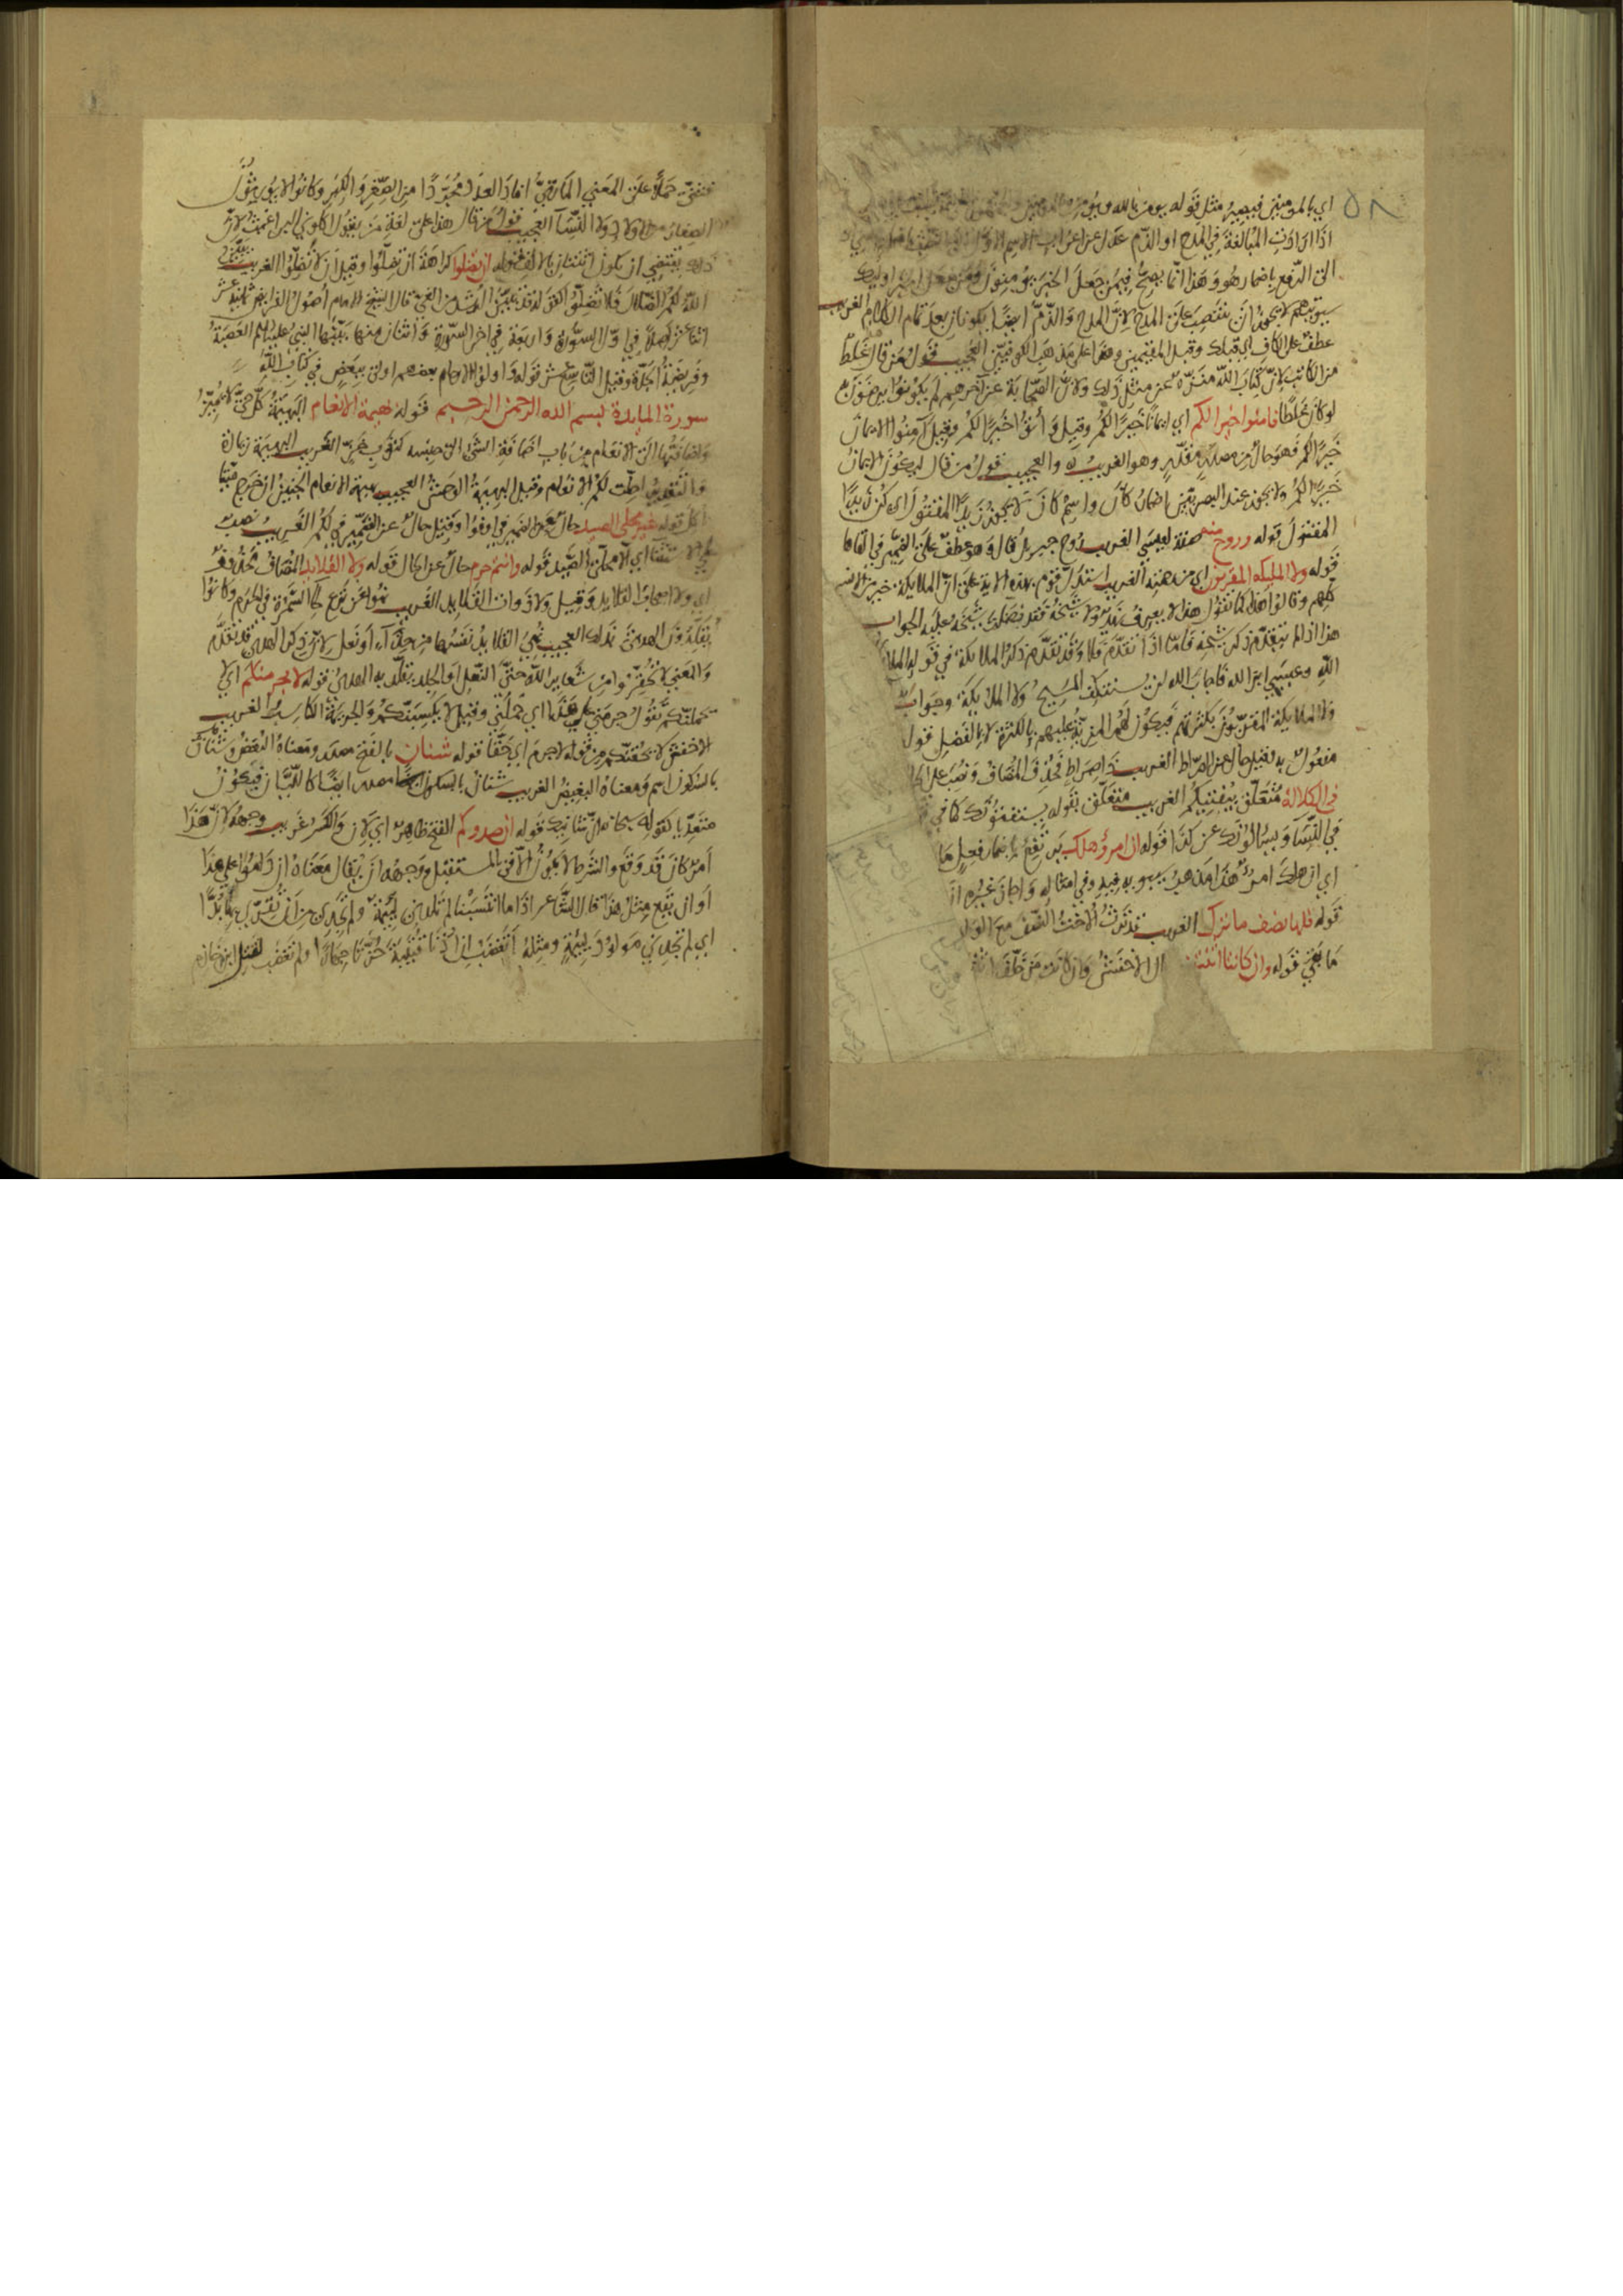 ٥٨
اي بالمومنين فيجيره مثل قوله يومن بالله ويؤمن
اذا ارادت المبالغة في المدح او الذم عدل عن اعراب الاسم الاول
الى الرفع باضمار هو وهذا انما يصح فيمن جعل الخبر يومنون ومن جعل الخبر اوليك
سيوتيهم لا يجوز ان ينتصب على المدح لان المدح والذم ايضا يكونان بعد تمام الكلام الغريب
عطف على الكاف اي قبلك وقبل المقيمين وهذا على مذهب الكوفيين العجيب قول من قال غلط
من الكاتب لان كتاب الله منزه عن مثل ذلك ولان الصحابة عن آخرهم لم يكونوا يرضون
لو كان غلطا فامنوا خيرا لكم اي ايمانا خيرا لكم وقيل وأتوا خيرا لكم وقيل آمنوا الايمان
خيرا لكم فهو حال من مصدر مقدر وهو الغريب والعجيب قول من قال ليكون الايمان
خيرا لكم ولا يجوز عند البصريين اضمار كان واسم كان لا يجوز زيدا المقتول اي كن زيدا
المقتول قوله وروح منه صفة لعيسى الغريب روح جبريل قال وهو عطف على الضمير في القاها
قوله ولا المليكه المقربون اي من هذه الغريب استدل قوم بهذه الاية على ان الملايكة خير من الانس
كلهم وقالوا هذا كما تقول هذا لا يعرفه زيد ولا شيخه فقد فضلت شيخه عليه الجواب
هذا اذا لم يتقدم ذكر شيخه فاما اذا تقدم فلا وقد تقدم ذكر الملايكة في قوله الملا
الله وعيسى ابن الله فاجاب الله لن يستنكف المسيح ولا الملايكة وجواب
ولا الملايكة المقربون بكثرتهم فيكون لهم المزية عليهم بالكثرة لا بالفضل قوله
مفعول به وقيل حال من الصراط الغريب ذا صراط فحذف المضاف ونصب على الحا
في الكلالة متعلق بيفتيكم الغريب متعلق بقوله يستفتونك كما في
في النسا ويسالونك عن كذا قوله ان امرؤ هلك يرتفع باضمار فعل ما
اي ان هلك امرؤ هذا مذهب سيبويه فيه وفي امثاله واجاز غيره ان
قوله فلها نصف ما ترك الغريب قد ترث الاخت النصف مع الولد
ما بقي قوله وان كانتا اثنتين ال الاخفش وان كان من خلف
فثنى حملا على المعنى المازني افاد العدد مجردا من الصغر والكبر وكانوا لا يورثون
الصغار من الاولاد ولا النسآ العجيب قول من قال هذا على لغة من يقول اكلوني البراغيث لان
ذلك يقتضي ان يكون اثنتان بالالف قوله ان تضلوا كراهة ان تضلوا وقيل ان لا تضلوا الغريب يبين
الله لكم الضلال فلا تضلوا كقوله قد تبين الرشد من الغي قال الشيخ الامام اصول الفرايض ثمنية عشر
اثنا عشر اصلا في اول السورة واربعة في اخر السورة واثنان منها بينها النبي عليه السلم العصبة
وفريضة الجدة وقيل التاسع عشر قوله واولوا الارحام بعضهم اولى ببعض في كتاب الله
سورة المايدة بسم الله الرحمن الرحيم قوله بهيمة الانعام البهيمة كل حي لا يميز
واضافتها الى الانعام من باب اضافة الشي الى جنسه كثوب خز الغريب البهيمة زيادة
والتقدير احلت لكم الانعام وقيل البهيمة الوحش العجيب بهيمة الانعام الجنين اذا خرج ميتا
اكل قوله غير محلى الصيد حال من الضمير في اوفوا وقيل حال عن الضمير في لكم الغريب نصب
على الاستثنا اي الا محلي الصيد قوله وانتم حرم حال عن الحال قوله ولا القلايد المضاف محذوف
اي ولا اصحاب القلايد وقيل ولا ذوات القلايد الغريب نهوا عن نزع لحا السمرة في الحرم وكانوا
يقلدون الهدي بذلك العجيب نحي القلايد نفسها من حذاء او نعل لان ذكر الهدي قد تقدم
والمعنى لا تحقروا من شعاير الله حتى النعل او الجلد يقلد به الهدي قوله لا يجرمنكم اي لا
يحملنكم تقول جرمني على هذا اي حملني وقيل لا يكسبنكم والجريمة الكاسب الغريب
الاخفش لا يحقنكم من قوله لا جرم اي حقا قوله شنان بالفتح مصدر ومعناه البغض وشنان
بالسكون اسم ومعناه البغيض الغريب شنان بالسكون مصدر ايضا كالليان فيكون
متعديا كقوله سبحانه ان شانيك قوله ان صدوكم الفتح ظاهر اي لان والكسر غريب وجهه لان هذا
امر كان قد وقع والشرط لا يكون الا في المستقبل ووجهه ان يقال معناه ان داموا على هذا
او ان يقع مثل هذا قال الشاعر اذا ما انتسبنا لم تلدني لئيمة ولم تجدي من ان تقري بها بدا
اي لم تجديني مولود لئيمة ومثله اتغضب ان اذنا قتيبة حزتا جهارا ولم تغضب لقتل ابن خازم